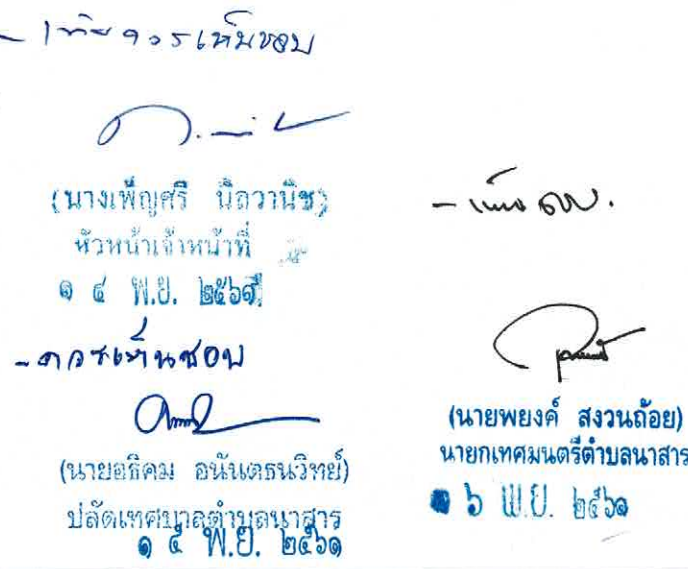 - เห็นควรเห็นชอบ
(นางเพ็ญศรี นิลวานิช)
หัวหน้าเจ้าหน้าที่
๑ ๔ พ.ย. ๒๕๖๑
- ควรเห็นชอบ
(นายอธิคม อนันตธนวิทย์)
ปลัดเทศบาลตำบลนาสาร
๑ ๕ พ.ย. ๒๕๖๑
- เห็นชอบ.
(นายพยงค์ สงวนถ้อย)
นายกเทศมนตรีตำบลนาสาร
๑ ๖ พ.ย. ๒๕๖๑